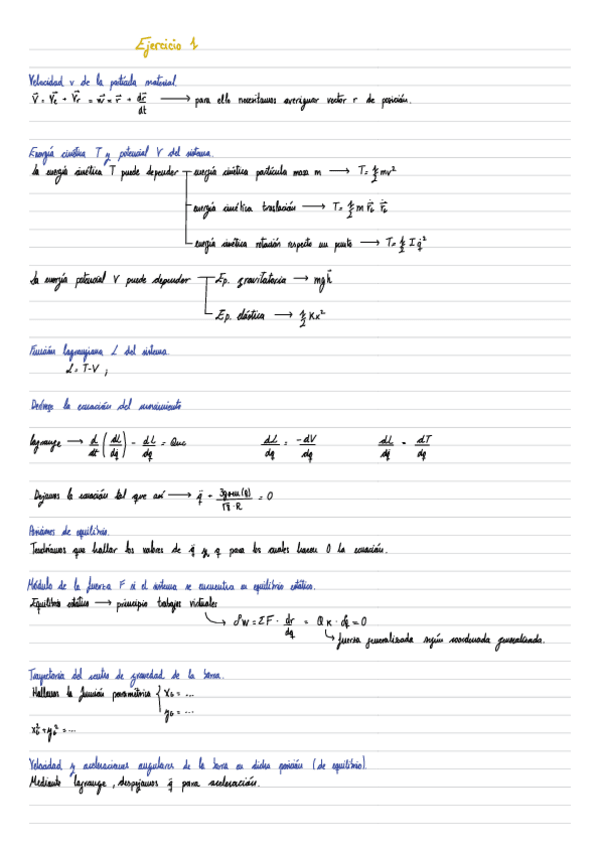 Ejercicio 1
Velocidad v de la partícula material.
v⃗ = v⃗t + v⃗r = w⃗ × r⃗ + dr⃗/dt ⟶ para ello necesitamos averiguar vector r de posición.
Energía cinética T y potencial V del sistema.
La energía cinética T puede depender energía cinética partícula masa m → T = 1/2 mv²
energía cinética traslación → T = 1/2 m v⃗G v⃗G
energía cinética rotación respecto un punto → T = 1/2 I q̇²
La energía potencial V puede depender Ep. gravitatoria → mgh⃗
Ep. elástica → 1/2 Kx²
Función lagrangiana L del sistema.
L = T-V ,
Deduzca la ecuación del movimiento
lagrange → d/dt (dL/dq̇) - dL/dq = Qnc dL/dq = -dV/dq dL/dq̇ = dT/dq̇
Dejamos la ecuación tal que así → = 0
Posiciones de equilibrio.
Tendríamos que hallar los valores de q̈ y q para los cuales hacen 0 la ecuación.
Módulo de la fuerza F si el sistema se encuentra en equilibrio estático.
Equilibrio estático → principio trabajos virtuales
δW = ΣF · dr/dq = QK · δq = 0
fuerza generalizada según coordenada generalizada.
Trayectoria del centro de gravedad de la barra.
Hallamos la función paramétrica { xG = ...
yG = ...
xG² + yG² = ...
Velocidad y aceleraciones angulares de la barra en dicha posición (de equilibrio).
Mediante lagrange, despejamos q̈ para aceleración.